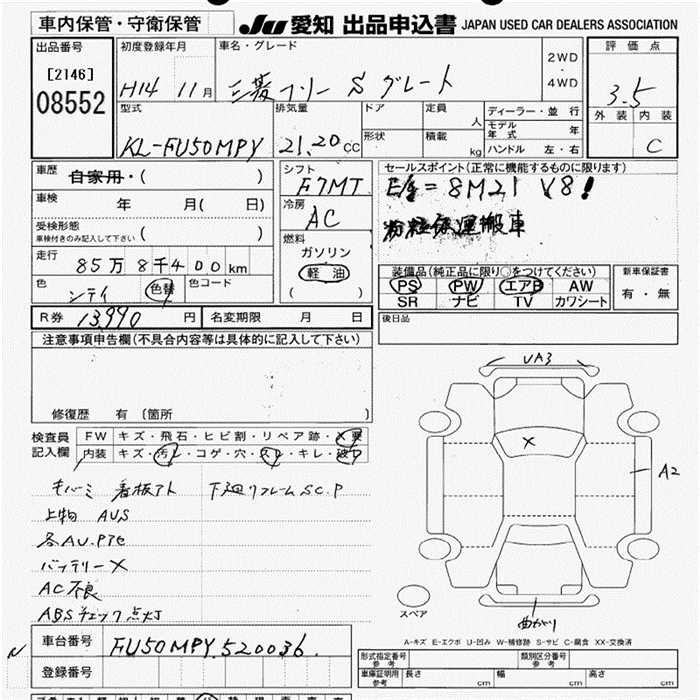 車内保管・守衛保管
JU 愛知 出品申込書 JAPAN USED CAR DEALERS ASSOCIATION
出品番号
[2146]
08552
初度登録年月
H14 11月
車名・グレード
三菱 フソー Sグレート
2WD
・
4WD
評価点
3.5
外装 内装
C
型式
KL-FU50MPY
排気量
21,20 CC
ドア
形状
定員
人
積載
kg
ディーラー・並行
モデル年式 年
ハンドル 左・右
車歴
自家用・( )
車検
年 月( 日)
受検形態
車検付きのみ記入して下さい ( )
走行
85万8千400km
色
色替
色コード
R券 13,990 円
名変期限 月 日
シフト
F7MT
冷房
AC
燃料
ガソリン
軽油
( )
セールスポイント(正常に機能するものに限ります)
E/g=8M21 V8!
粉粒体運搬車
装備品(純正品に限り○をつけてください)
PS PW エアB AW
SR ナビ TV カワシート
新車保証書
有・無
後日品
注意事項申告欄(不具合内容等は具体的に記入して下さい)
修復歴 有 〔箇所 〕
検査員
記入欄
FW キズ・飛石・ヒビ割・リペア跡・X要
内装 キズ・汚レ・コゲ・穴・スレ・キレ・破レ
キバミ 看板アト 下廻リフレームSC.P
上物 AUS
各AU.P7セ
バッテリーX
AC不良
ABSチェック点灯
車台番号 FU50MPY.520036.
登録番号
UA3
X
A2
曲がり
スペア
A-キズ E-エクボ U-凹み W-補修跡 S-サビ C-腐食 XX-交換済
形式指定番号
参考
類別区分番号
参考
車庫証明用
参考
長さ cm
幅 cm
高さ cm